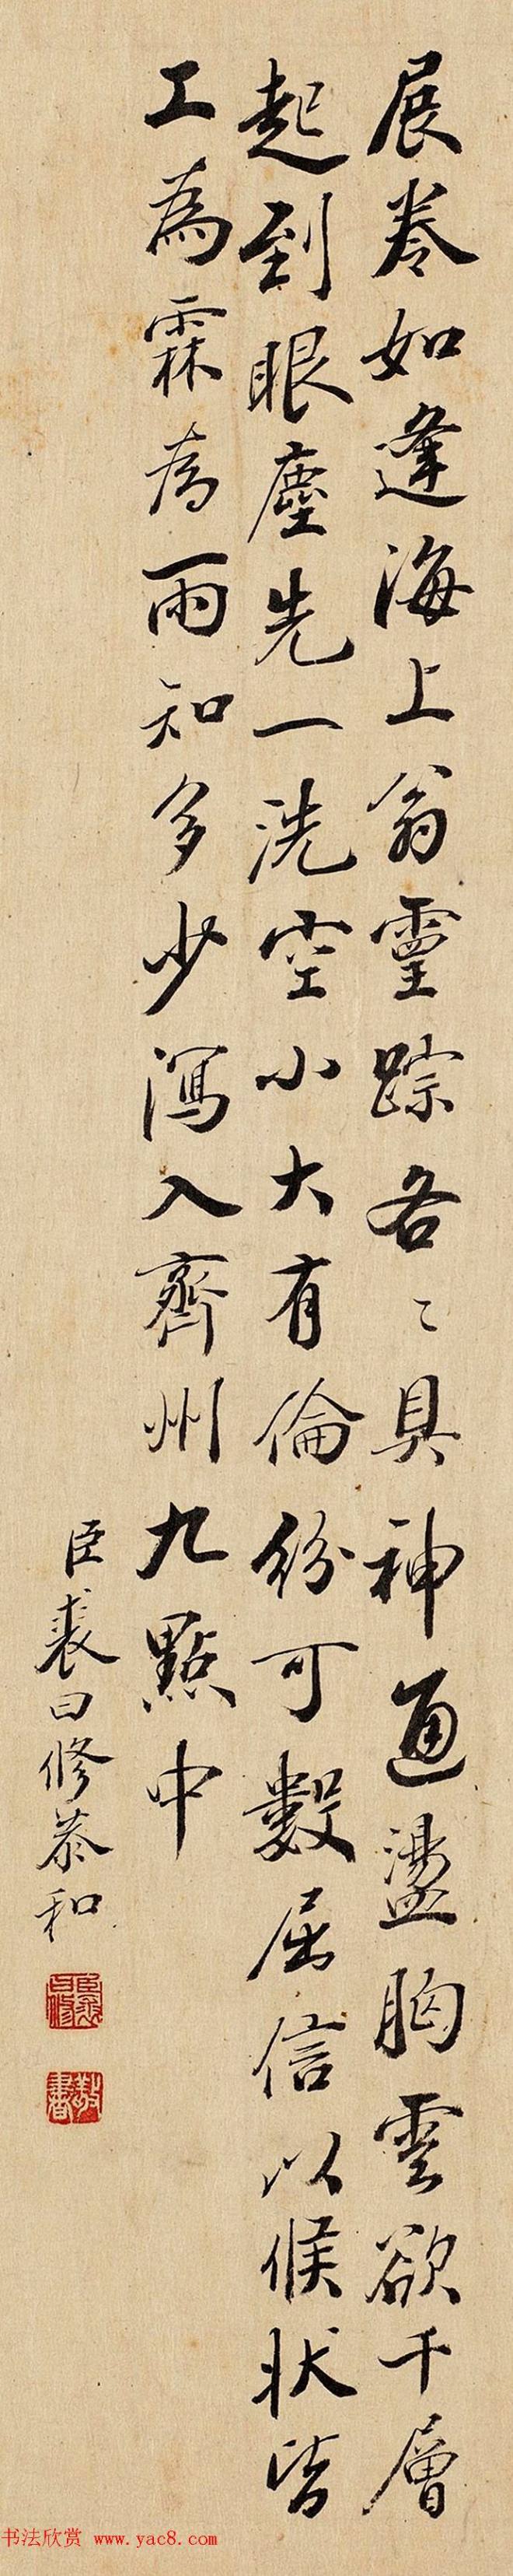 展卷如逢海上翁靈踪各々具神通盪胸雲欲千層
起到眼塵先一洗空小大有倫紛可數屈信以候狀皆
工為霖為雨知多少瀉入齊州九點中
臣裘曰修恭和
臣裘曰修
敬書
书法欣赏 www.yac8.com